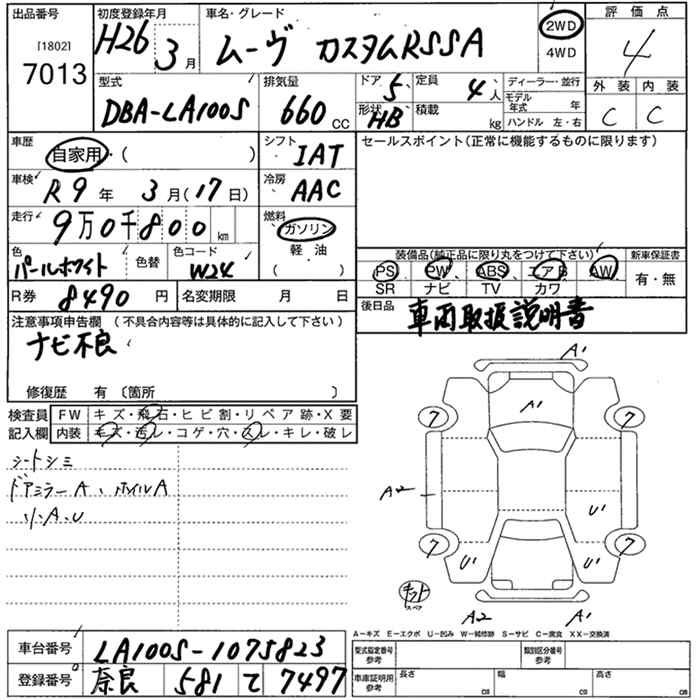 出品番号 初度登録年月 車名・グレード 評価点
[1802] 7013 H26 3月 ムーヴ カスタムRSSA 2WD 4WD 4
型式 排気量 ドア 5 定員 4人 ディーラー・並行 外装 内装
DBA-LA100S 660cc 形状 HB 積載 kg モデル年式 年 ハンドル 左・右 C C
車歴 自家用・( ) シフト IAT セールスポイント(正常に機能するものに限ります)
車検 R9年 3月(17日) 冷房 AAC
走行 9万0千800km 燃料 ガソリン 軽・油 ( )
色 パールホワイト 色替 色コード W24
装備品(純正品に限り丸をつけて下さい) 新車保証書
PS PW ABS エアB AW 有・無
SR ナビ TV カワ
R券 8490円 名変期限 月 日
後日品 車両取扱説明書
注意事項申告欄 (不具合内容等は具体的に記入して下さい)
ナビ不良
修復歴 有 〔箇所 〕
検査員 FW キズ・飛石・ヒビ割・リペア跡・X要
記入欄 内装 キズ・汚レ・コゲ・穴・スレ・キレ・破レ
シートシミ
ドアミラーA、ホイルA
小A.U
A1
A1
7 7
A2
U1
7 7
U1 U1
キット
スペア
A2 A1
A-キズ E-エクボ U-凹み W-補修跡 S-サビ C-腐食 XX-交換済
車台番号 LA100S-1075823
登録番号 奈良 581 て 7497
型式指定番号 参考 類別区分番号 参考
車庫証明用 参考 長さ cm 幅 cm 高さ cm